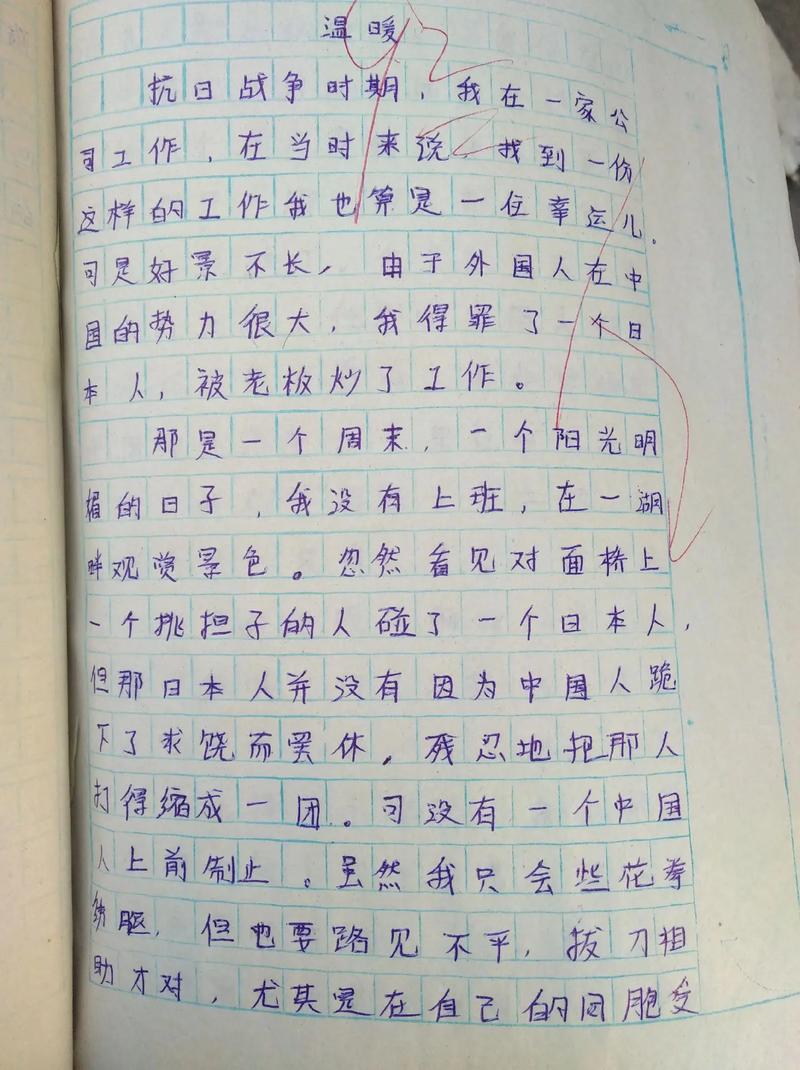 温暖
抗日战争时期，我在一家公
司工作，在当时来说，找到一份
这样的工作我也算是一位幸运儿。
可是好景不长，由于外国人在中
国的势力很大，我得罪了一个日
本人，被老板炒了工作。
那是一个周末，一个阳光明
媚的日子，我没有上班，在一湖
畔观赏景色。忽然看见对面桥上
一个挑担子的人碰了一个日本人，
但那日本人并没有因为中国人跪
下了求饶而罢休，残忍地把那人
打得缩成一团。可没有一个中国
人上前制止。虽然我只会些花拳
绣腿，但也要路见不平，拔刀相
助才对，尤其是在自己的同胞受